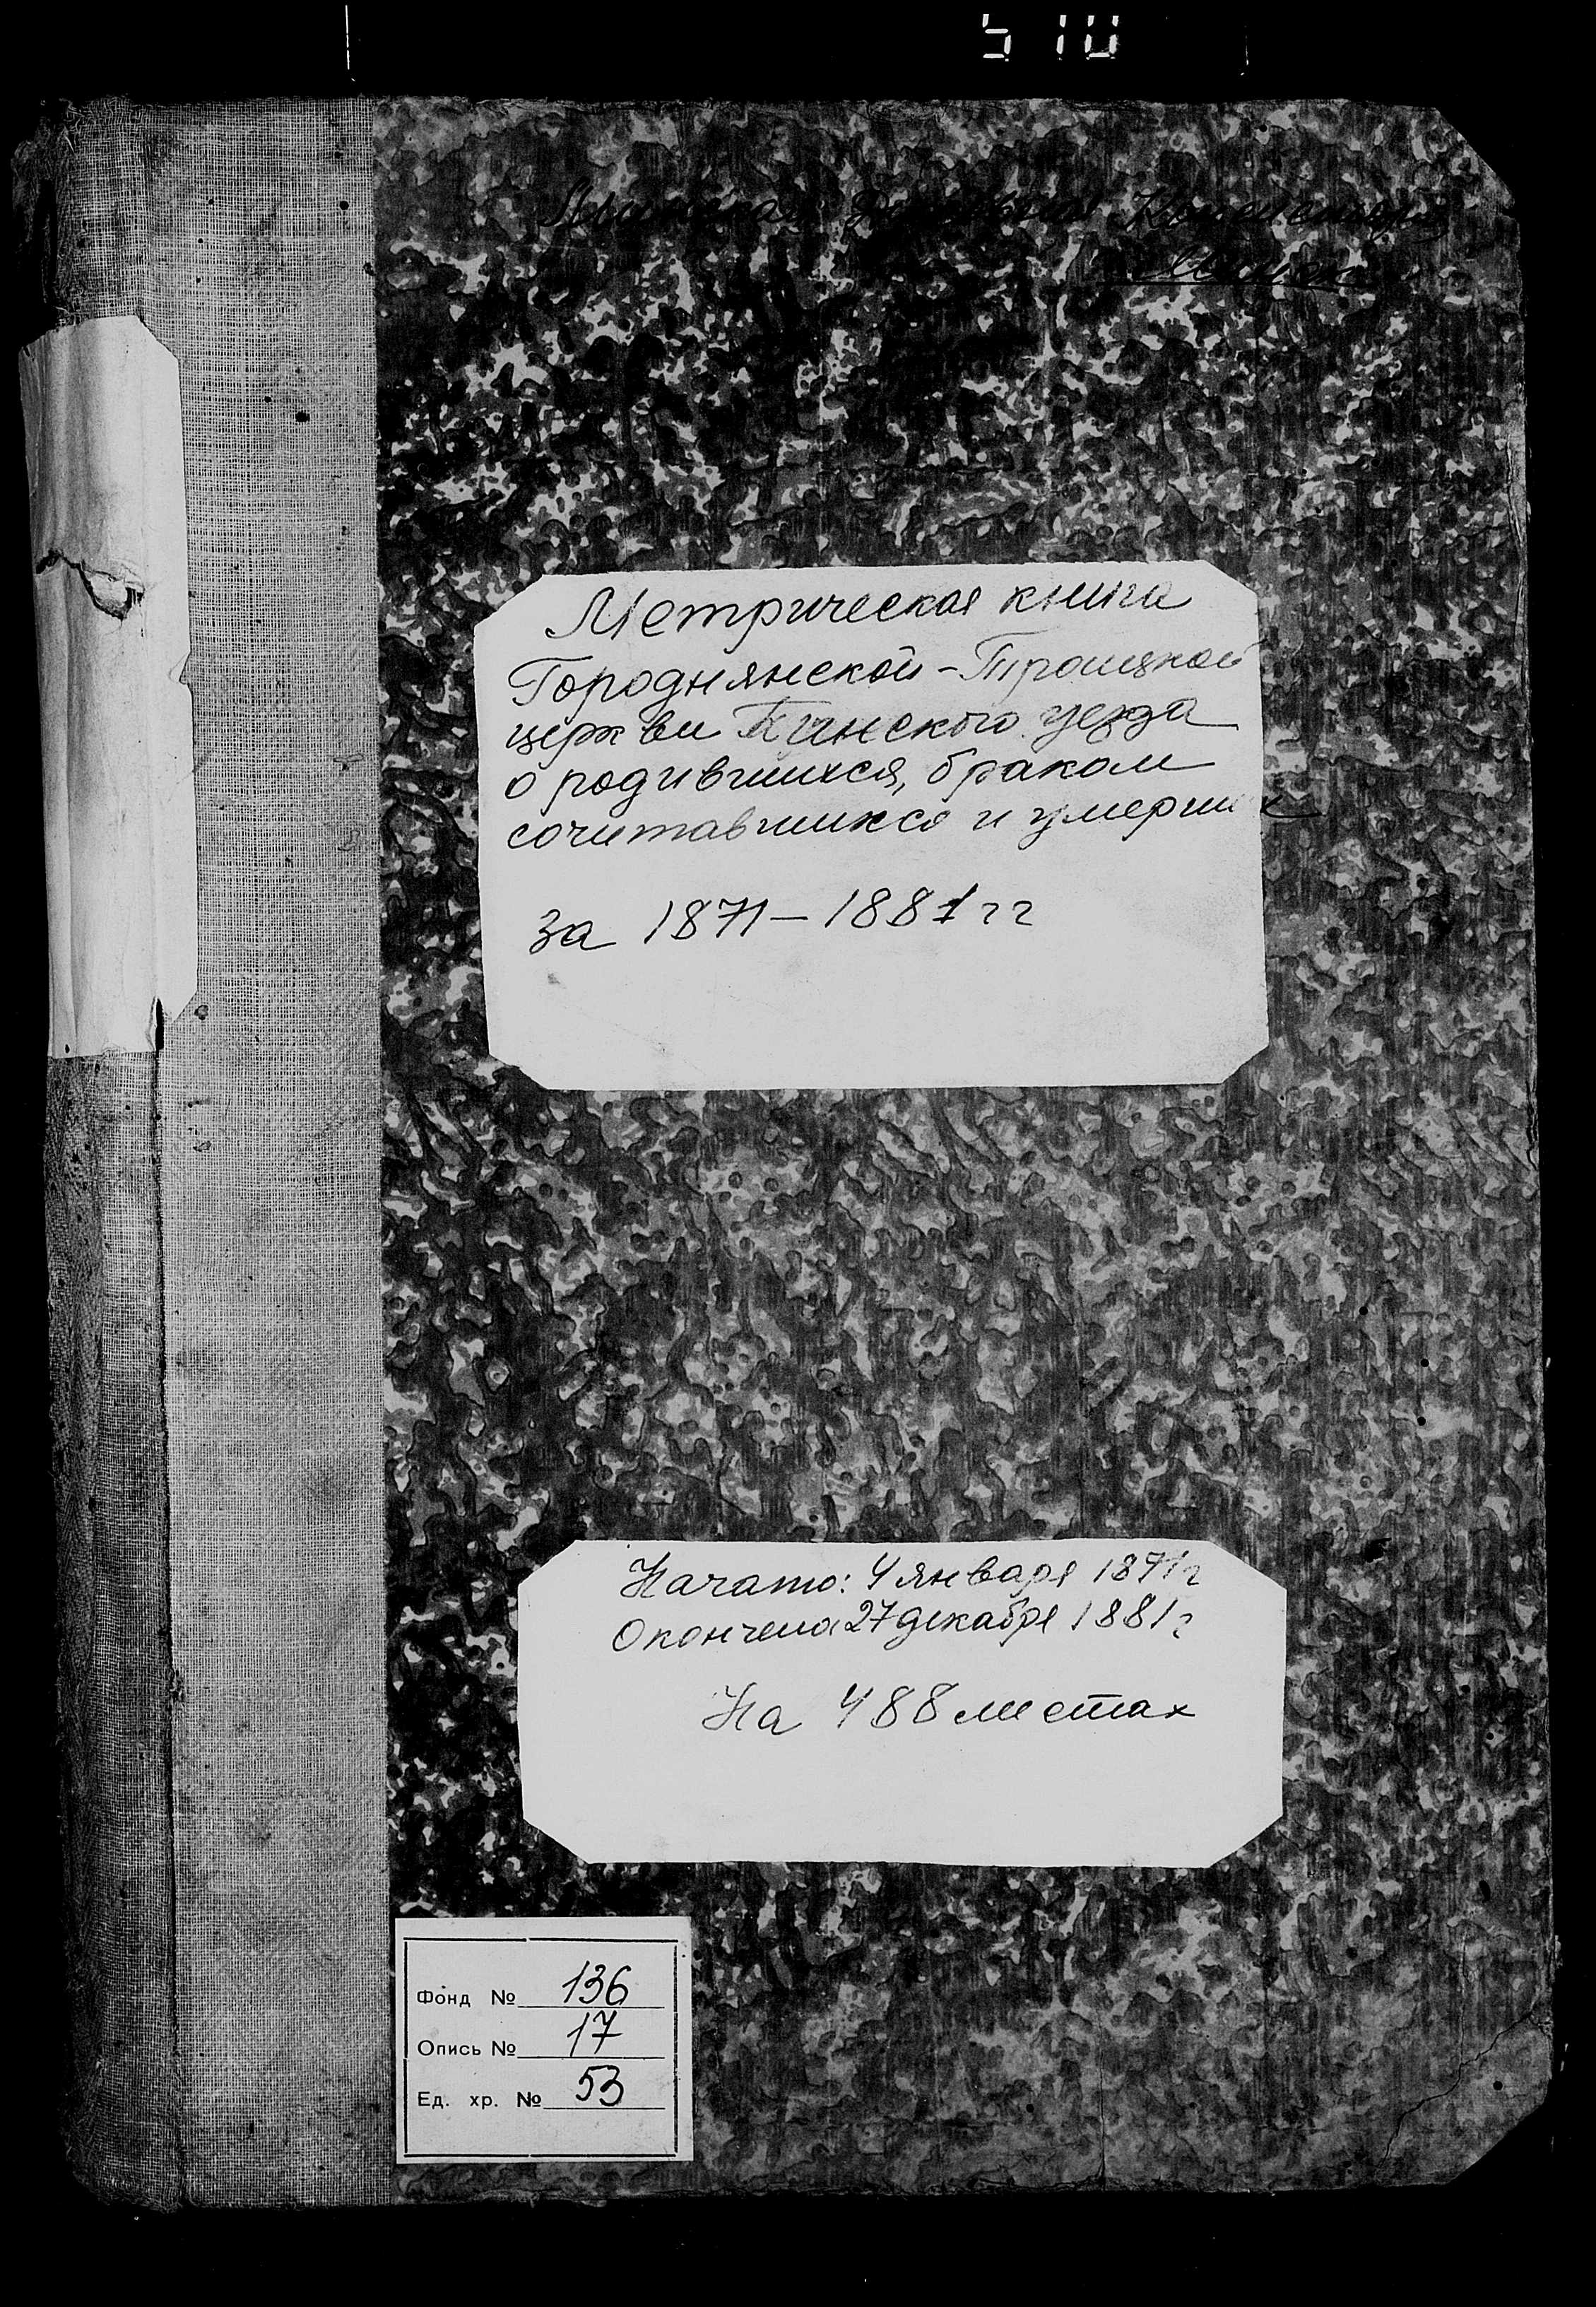 510
Минская духовная Консистория
Минск
Метрическая книга
Городнянской-Троицкой
церкви Пинского уезда
о родившихся, браком
сочитавшихся и умерших
за 1871-1881 гг
Начато: 4 января 1871 г
Окончена 27 декабря 1881 г
На 488 листах
Фонд № 136
Опись № 17
Ед. хр. № 53